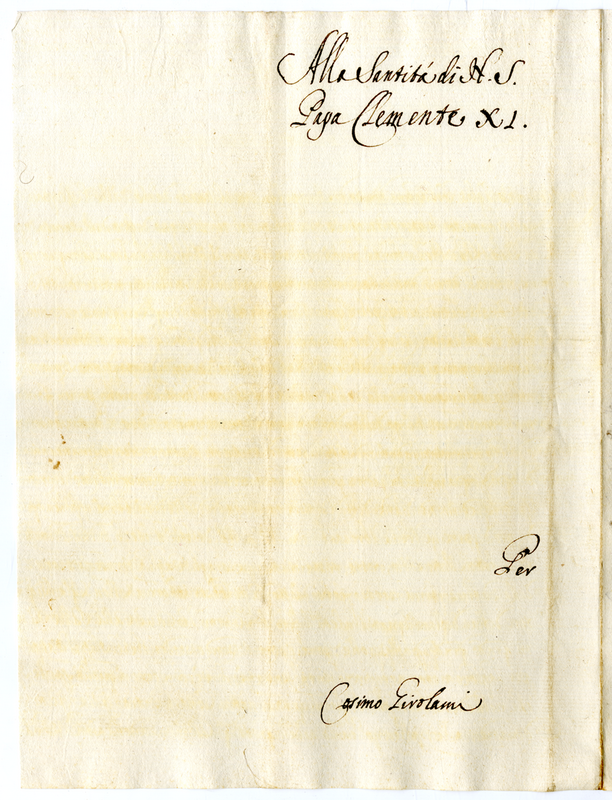 Alla Santità di N. S.
Papa Clemente XI.
Per
Cosimo Girolami